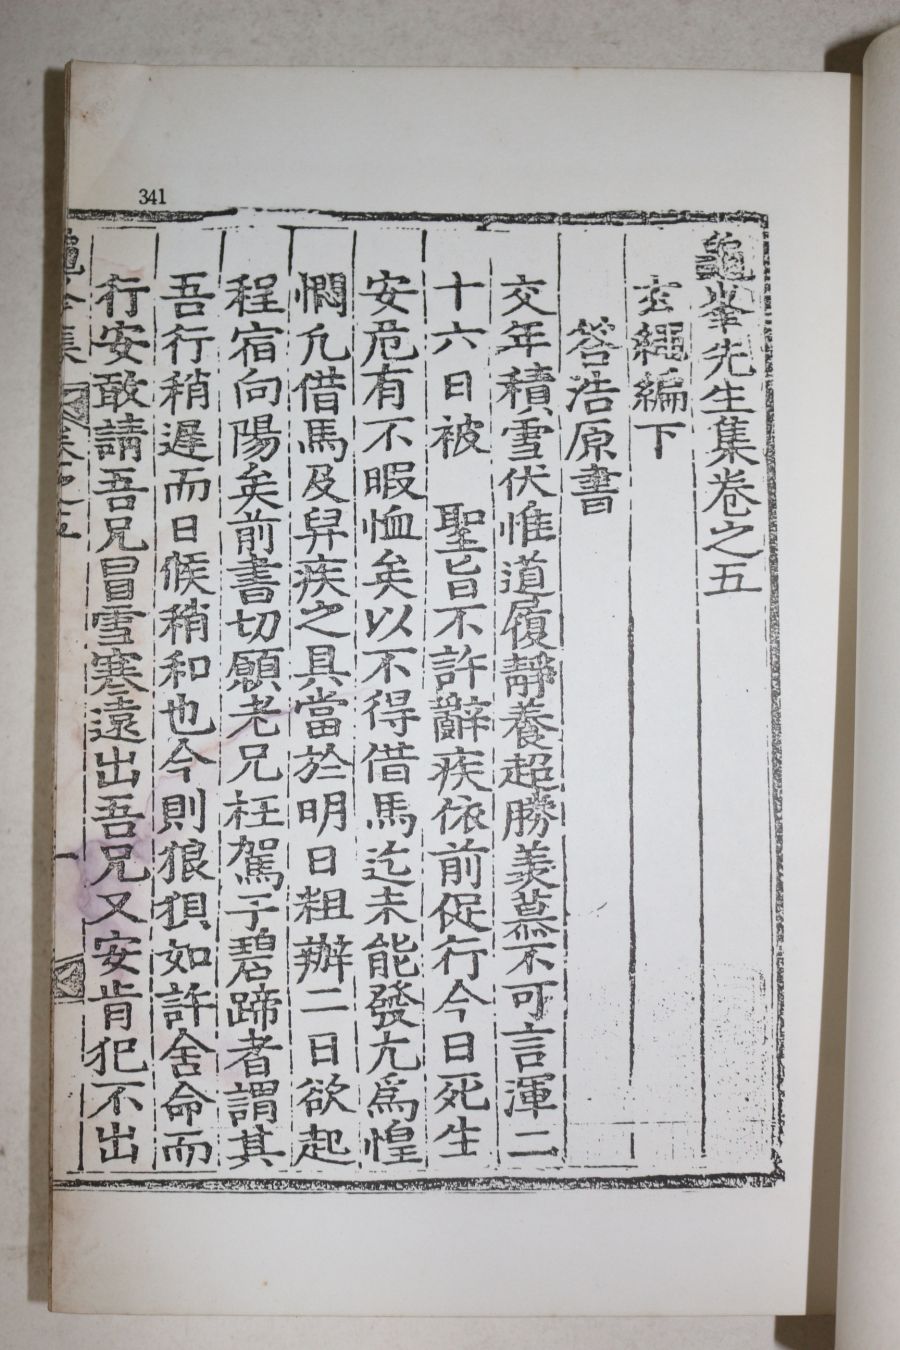 341
龜峯先生集卷之五
玄繩編下
答浩原書
交年積雪伏惟道履靜養超勝羨慕不可言渾二
十六日被 聖旨不許辭疾依前促行今日死生
安危有不暇恤矣以不得借馬迄未能發尤爲惶
憫凡借馬及舁疾之具當於明日粗辦二日欲起
程宿向陽矣前書切願老兄枉駕于碧蹄者謂其
吾行稍遲而日候稍和也今則狼狽如許舍命而
行安敢請吾兄冒雪寒遠出吾兄又安肯犯不出
龜峯集 卷之五 一